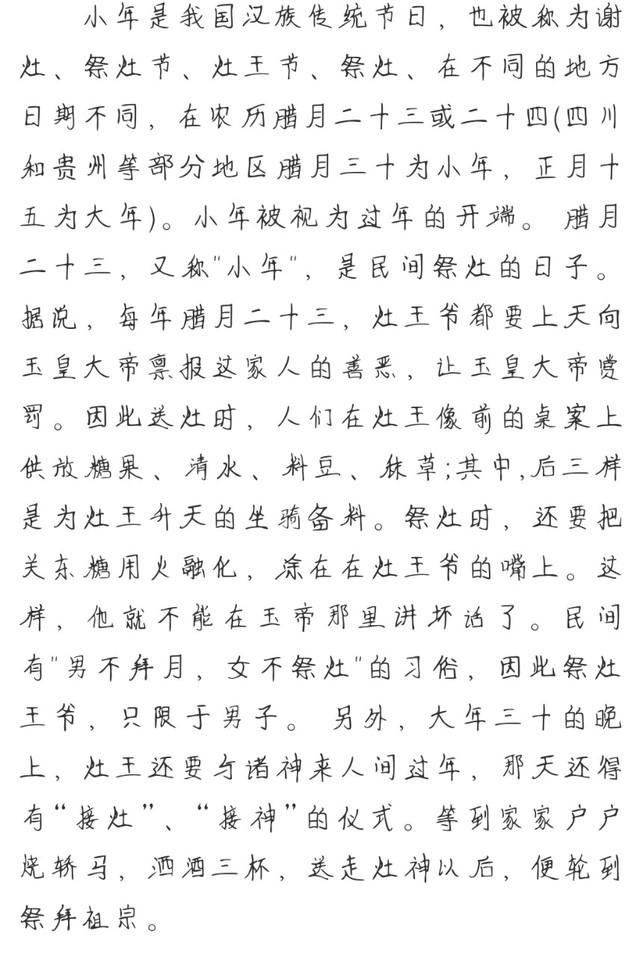 小年是我国汉族传统节日，也被称为谢
灶、祭灶节、灶王节、祭灶、在不同的地方
日期不同，在农历腊月二十三或二十四(四川
和贵州等部分地区腊月三十为小年，正月十
五为大年)。小年被视为过年的开端。 腊月
二十三，又称"小年"，是民间祭灶的日子。
据说，每年腊月二十三，灶王爷都要上天向
玉皇大帝禀报这家人的善恶，让玉皇大帝赏
罚。因此送灶时，人们在灶王像前的桌案上
供放糖果、清水、料豆、秣草;其中,后三样
是为灶王升天的坐骑备料。祭灶时，还要把
关东糖用火融化，涂在在灶王爷的嘴上。这
样，他就不能在玉帝那里讲坏话了。民间
有"男不拜月，女不祭灶"的习俗，因此祭灶
王爷，只限于男子。 另外，大年三十的晚
上，灶王还要与诸神来人间过年，那天还得
有“接灶”、“接神”的仪式。等到家家户户
烧轿马，洒酒三杯，送走灶神以后，便轮到
祭拜祖宗。